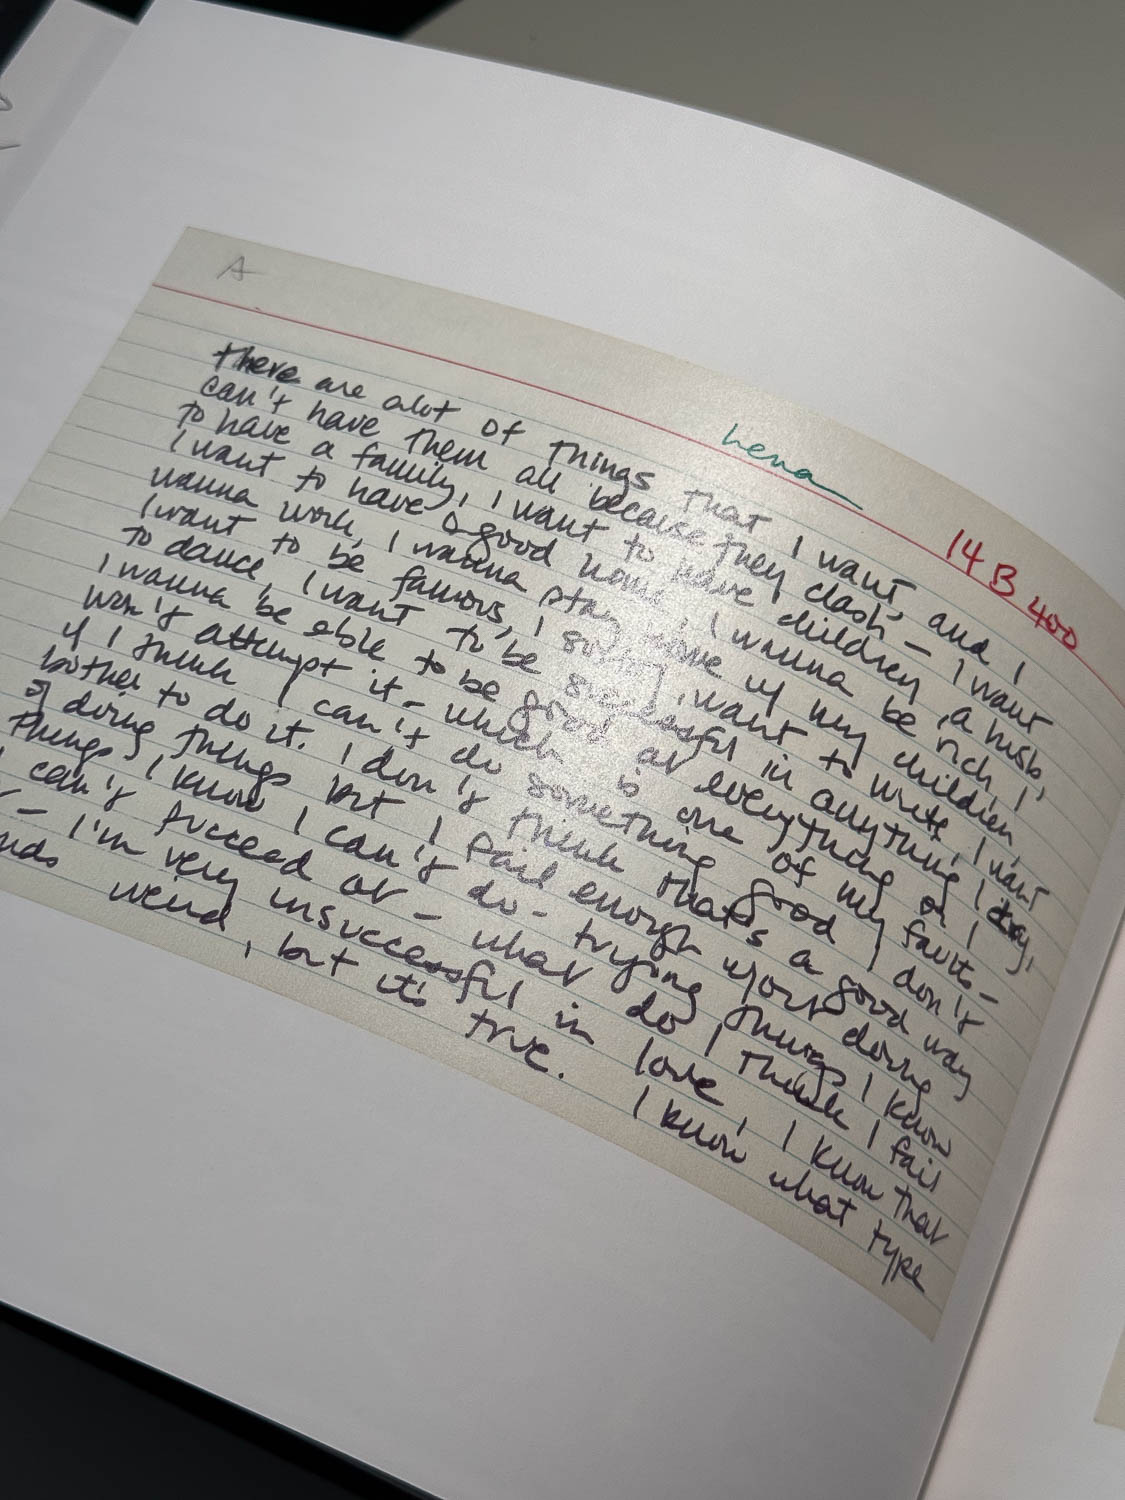 A
Lena
14 B 400
there are alot of things that I want, and I
can't have them all because they clash - I want
to have a family, I want to have children, a husb,
I want to have a good home, I wanna be rich, I
wanna work, I wanna stay home w/ my children,
I want to be famous, I want to write, I want
to dance, I want to be successful in anything I
I wanna be able to be good at everything or I
won't attempt it - which is one of my faults -
if I think I can't do something good I don't
bother to do it. I don't think that's a good way
of doing things but I fail enough w/out doing
things I know I can't do - trying things I know
I can't succeed at - what do I think I fail
- I'm very insuccessful in love, I know that
weird, but it's true. I know what type